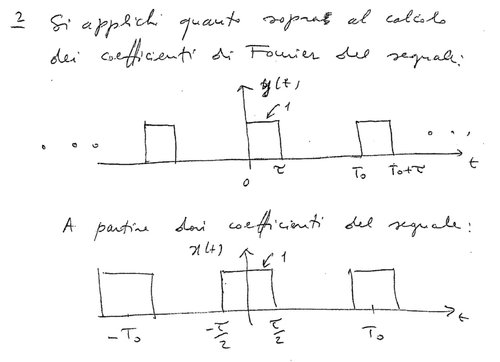 2 Si applichi quanto sopra al calcolo
dei coefficienti di Fourier del segnale:
y(t)
1
0 τ T₀ T₀+τ t
A partire dai coefficienti del segnale:
x(t)
1
-T₀ -τ/2 τ/2 T₀ t